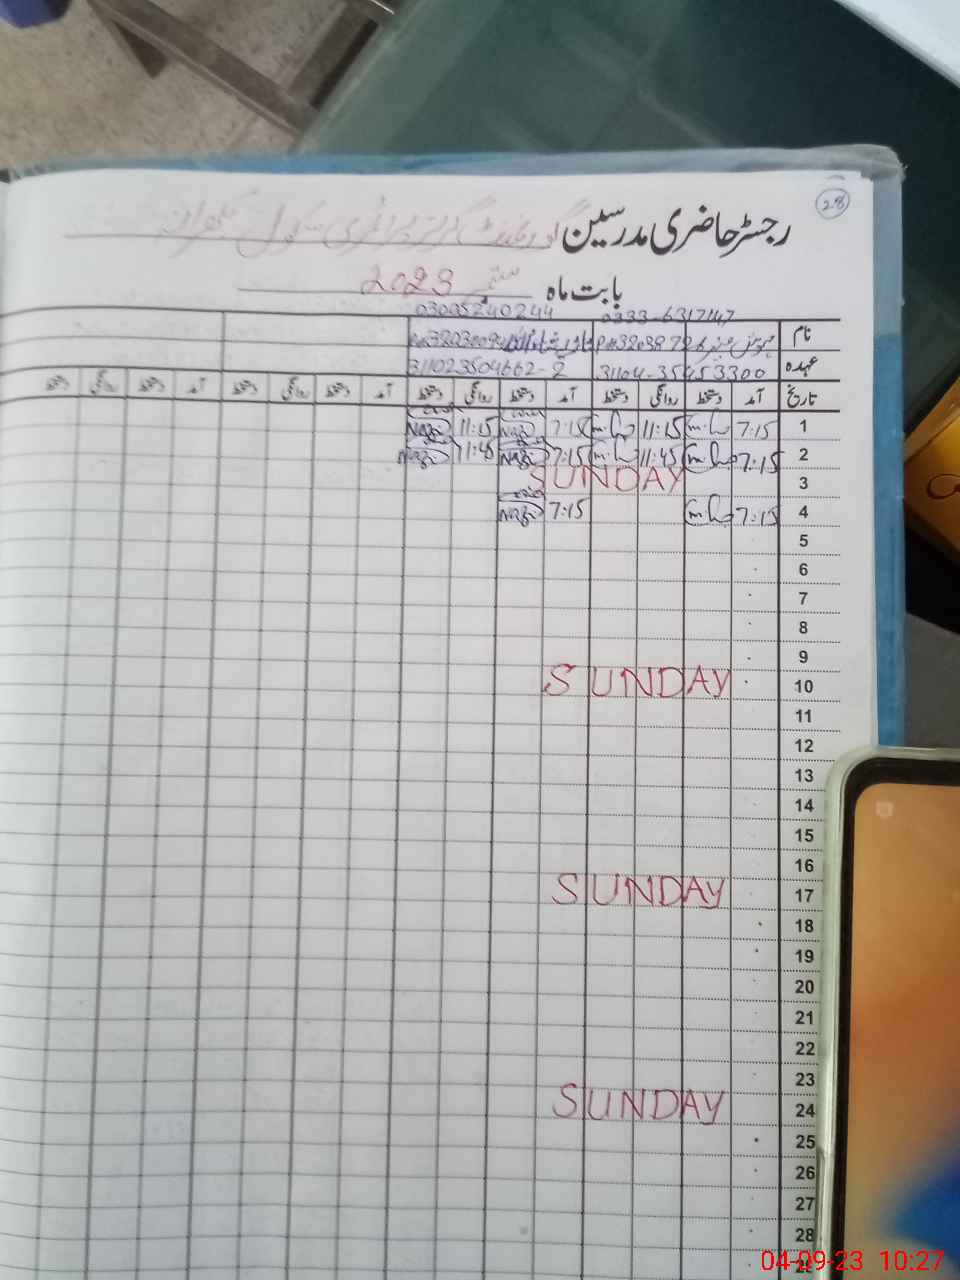 28
رجسٹر حاضری مدرسین گورنمنٹ گرلز پرائمری سکول
بابت ماہ ستمبر 2023
0333-6317147 03005240244
نام
عہدہ 31104-35453300 311023504662-2
تاریخ آمد دستخط روانگی دستخط آمد دستخط روانگی دستخط آمد دستخط روانگی دستخط آمد دستخط روانگی دستخط
1 7:15 m.h 11:15 m.h 7:15 Naz 11:15 Naz
2 7:15 m.h 11:45 m.h 7:15 Naz 11:45 Naz
3 SUNDAY
4 7:15 m.h 7:15 Naz
5
6
7
8
9
10 SUNDAY
11
12
13
14
15
16
17 SUNDAY
18
19
20
21
22
23
24 SUNDAY
25
26
27
28
04-09-23 10:27